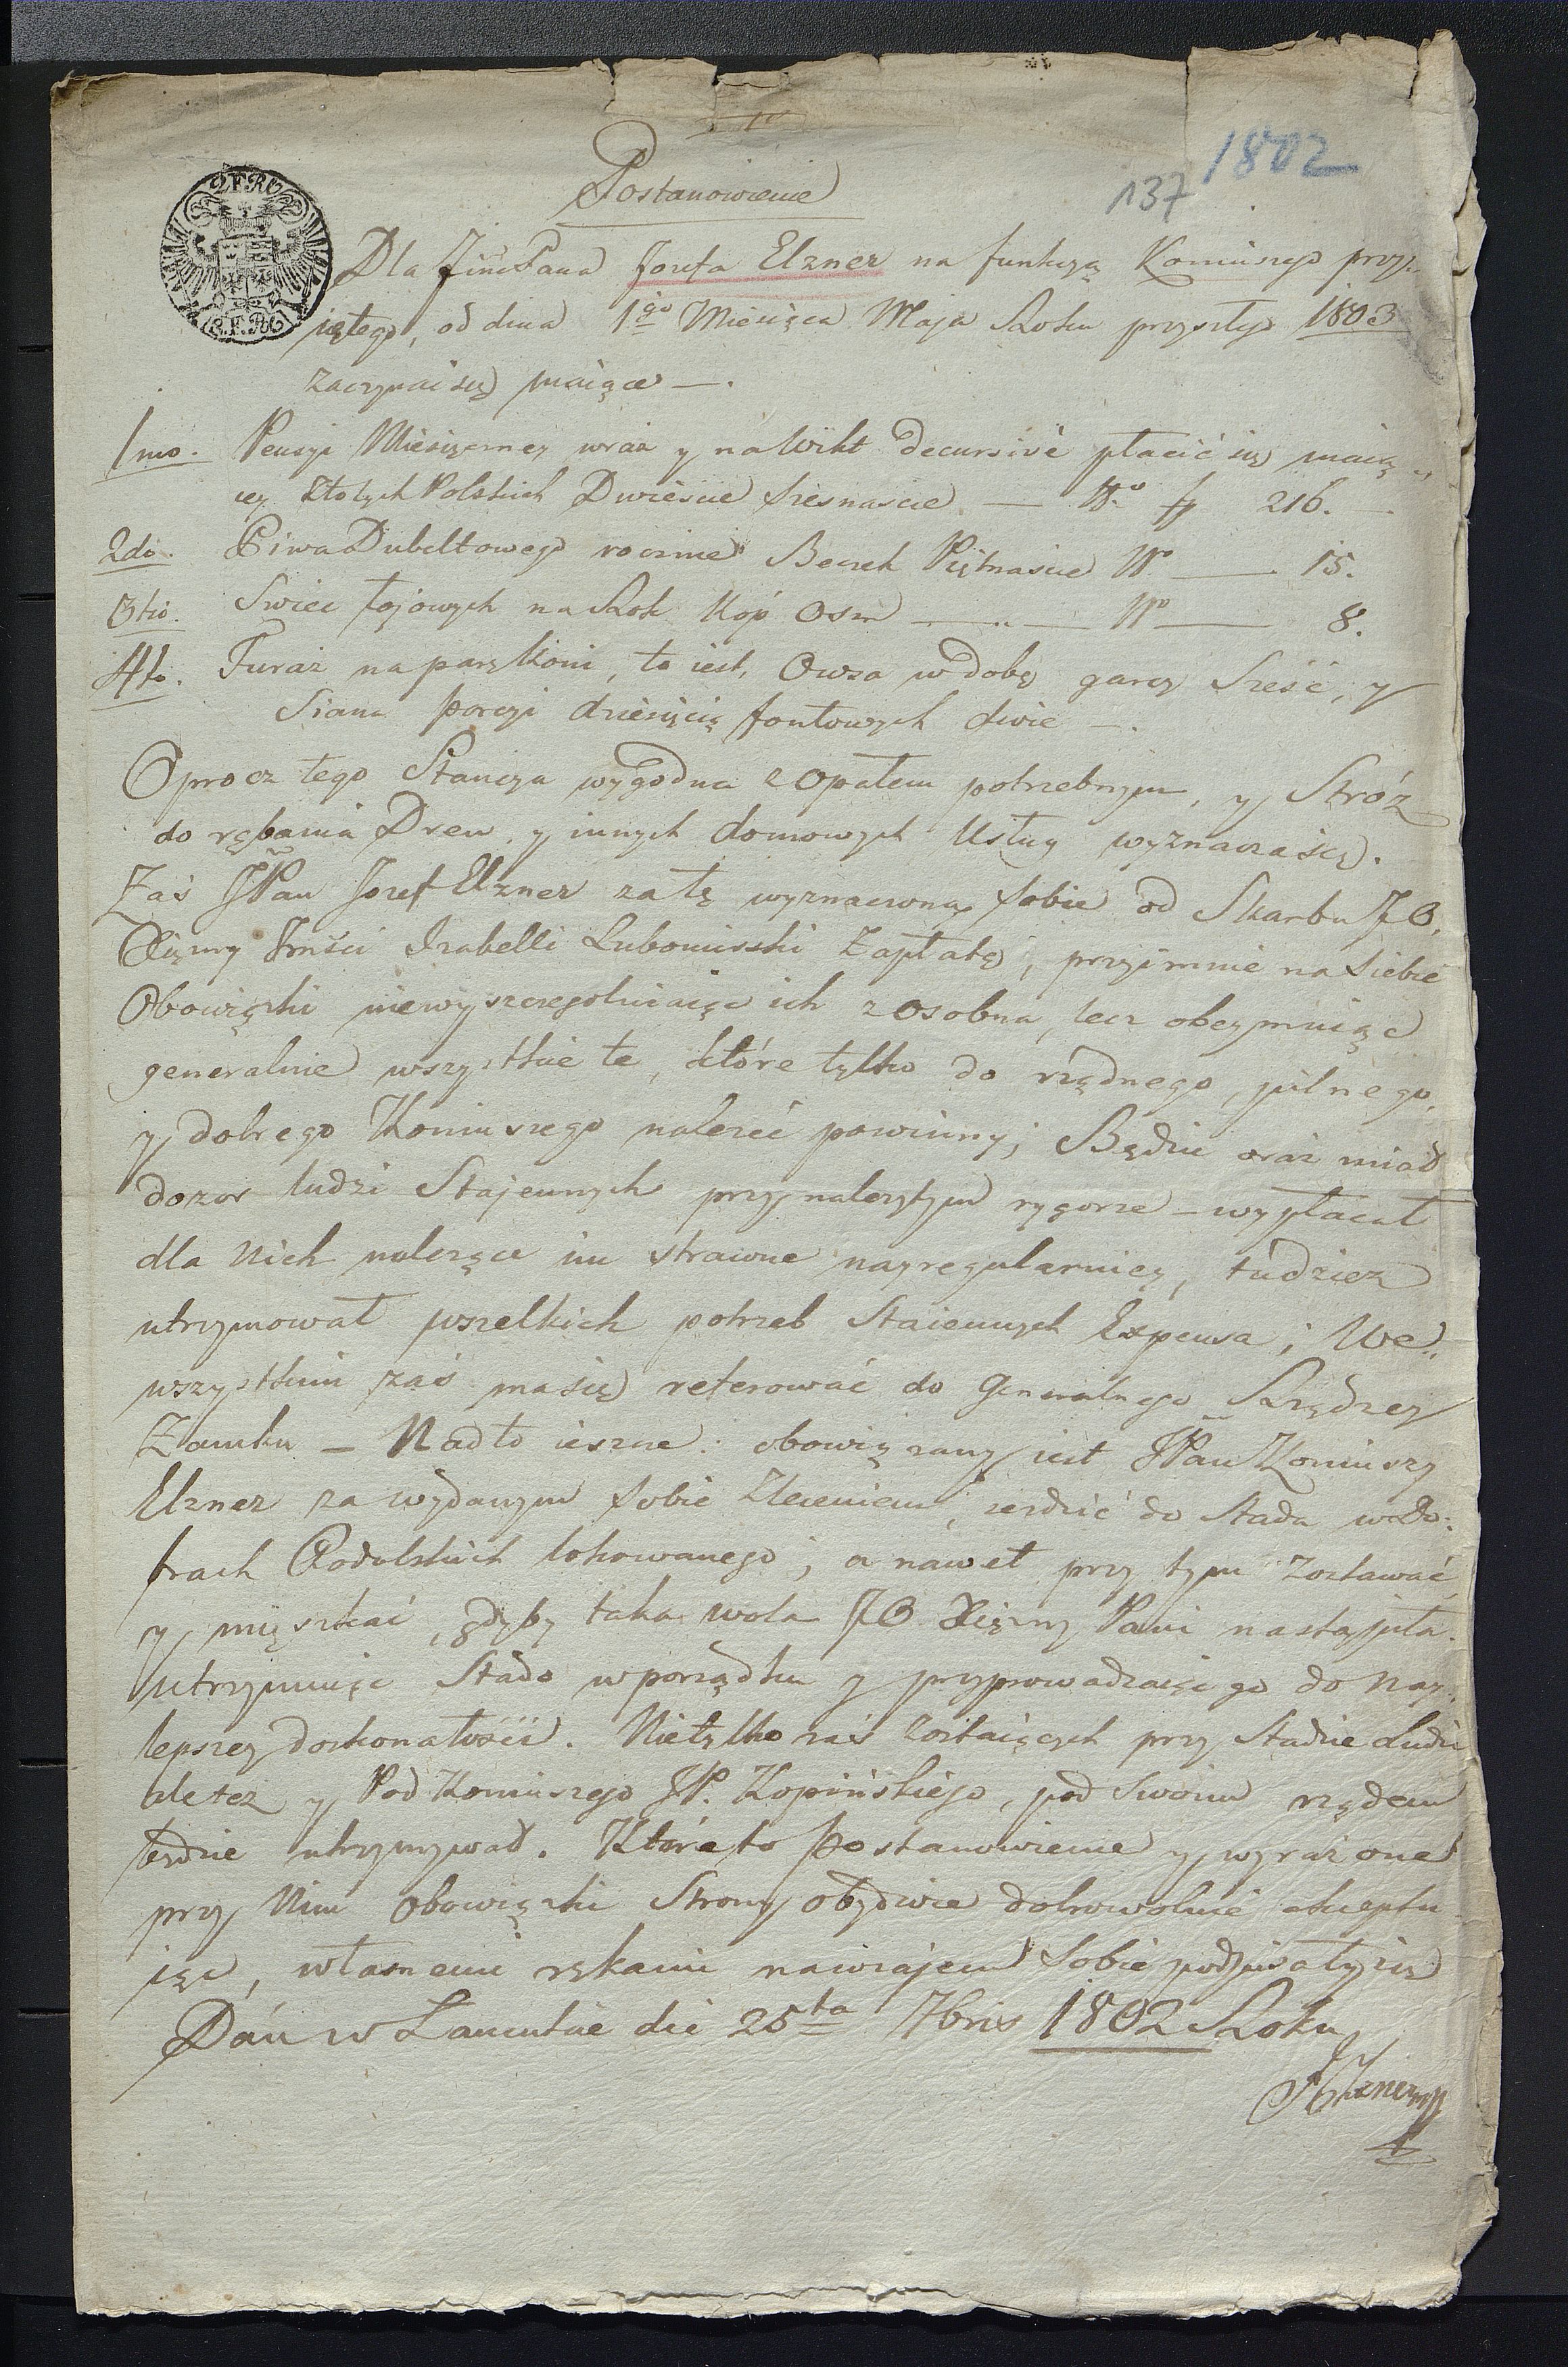 1802
137
Postanowienie
2 F.R.C
2.F.RC
Dla Jmć Pana Jozefa Elzner na funkcyą Koniuszego przy-
iętego, od dnia 1go Miesiąca Maja Roku przyszłego 1803
zaczynai się maiące —.
1mo. Pensyi Miesięczney wraz y na Wikt decursivè płacić się maią-
cey Złotych Polskich Dwieście szesnascie — No fp 216. —
2do. Piwa Dubeltowego rocznie Beczek Piętnascie No — 15.
3tio. Swiec łojowych na Rok Kop Osm — „ — No — 8.
4to. Furaż na parę Koni, to iest, Owsa w dobę garcy Sześć, y
Siana porcyi dziesięcio fontowych dwie —.
Oprocz tego Stancya wygodna z Opałem potrzebnym, y Stróż
do rębania Drew, y innych domowych Usług wyznacza się.
Zaś JPan Jozef Elzner za tę wyznaczoną sobie od Skarbu JO.
Xiężny Jmści Izabelli Lubomirski Zapłatę, przyimnie na Siebie
Obowiązki niewyszczegolniaiąc ich z Osobna, lecz obeymuiąc
generalnie wszystkie te, które tylko do rządnego, pilnego,
y dobrego Koniuszego należeć powinny; Będzie oraz miał
dozor ludzi Stajennych przy należytym rygorze – wypłacał
dla Nich należące im strawne nayregularniey, tudzież
utrzymował wszelkich potrzeb Staiennych Expensa; We„
wszystkim zaś ma się referować do Generalnego Rządzcy
Zamku – Nadto ieszcze: obowiązany iest JPan Koniuszy
Elzner za wydanym sobie Zleceniem, iezdzić do Stada w Do:
brach Podolskich lokowanego; a nawet przy tym zostawać,
y mięszkać, gdyby taka wola JO Xiężny Pani nastąpiła.
utrzymuiąc Stado w porządku y przyprowadzaiąc go do nay„
lepszey doskonałości. Nietylko zaś zostaiących przy Stadzie Ludzi
ale też y Pod Koniuszego JP. Kopińskiego, pod Swoim rządem
będzie utrzymywał. Które to postanowienie y wyrażone
przy Nim Obowiązki Strony obydwie dobrowolnie akceptu
iąc, własnemi rękami nawzajem Sobie podpisały się
Dan w Łancucie die 25ta 7bris 1802 Roku
JElzner mp